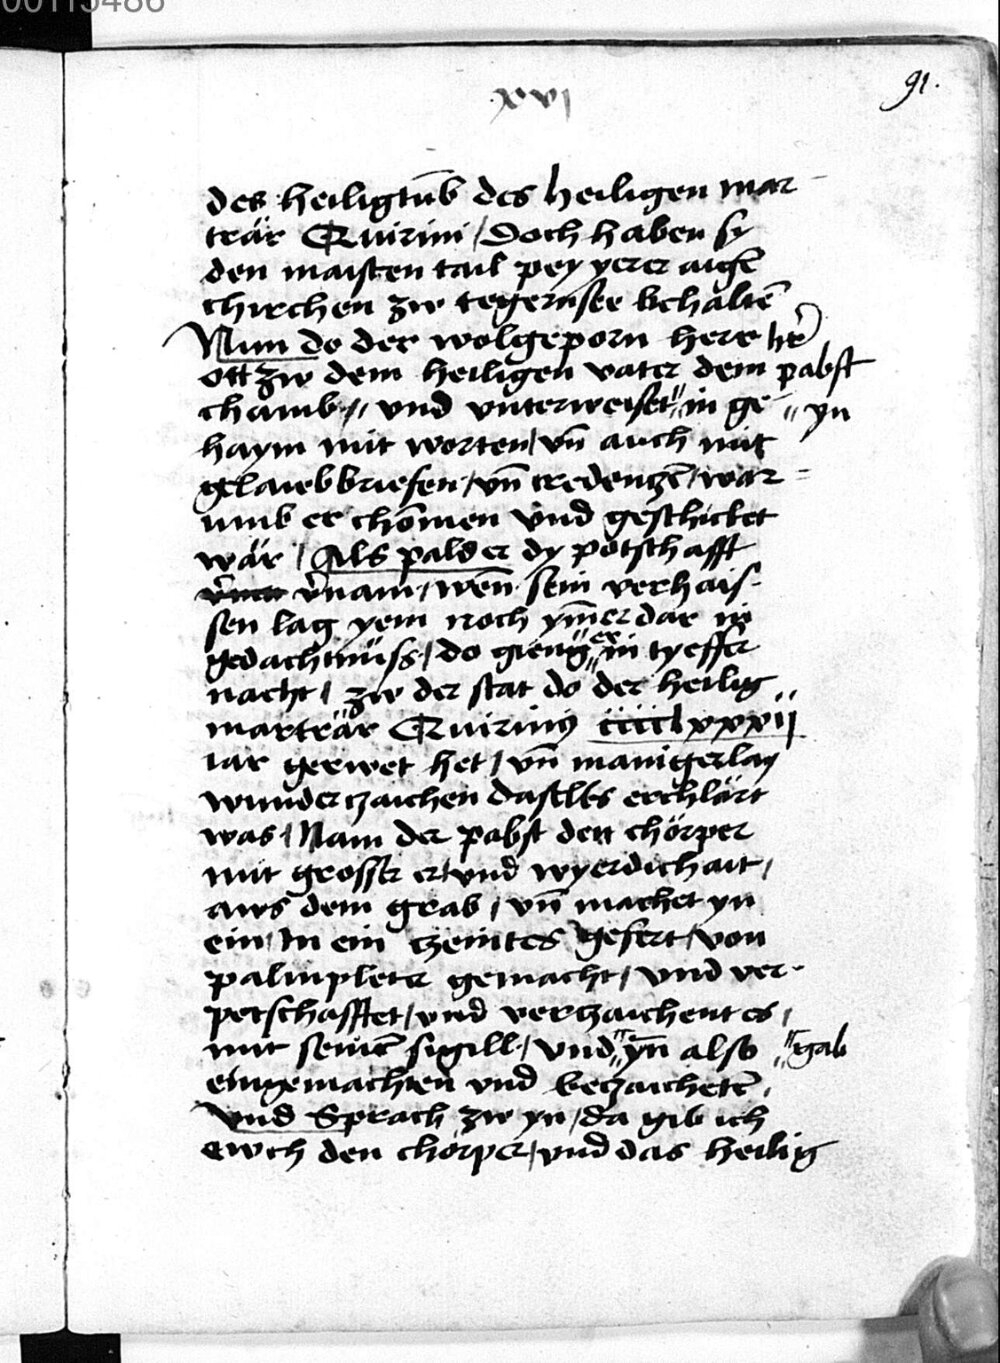 00113486
.xvi
91.
des heiligtūb des heiligen mar-
trär Quirini / Doch haben sy
den maisten tail pey yrer aigē
chirchen zw tegernsee behaltē
Nun do der wolgeporn herr h̄r
ott zw dem heiligen vater dem pabst
chamb // vnd vnterweiset " in ge- " yn
haym mit worten / vn̄ auch mit
gelaubbriefen / vn̄ credenczē / war=
umb er chōmen vnd geschicket
wär / Als pald er dy potschafft
v̄nam / wen̄ sein verhais-
sen lag yem noch ym̄erdar in
gedachtnüss / do gieng er in tyeffer
nacht / zw der stat do der heilig
marträr Quirinus cccclxxxij
iar gerwet het / vn̄ manigerlay
wunderczaichen daselbs erchlärt
was / Nam der pabst den chörper
mit grosser er / vnd wyerdichait /
aws dem grab / vn̄ machet yn
ein / In ein czeintes gefert / von
palmpleter gemacht / vnd ver-
petschafftet / vnd verczaichent es /
mit seinē sigill / vnd " yn̄ also " gab
eingemachten vnd beczaichetē /
Vnd Sprach zw yn / da gib ich
ewch den chörper / vnd das heilig